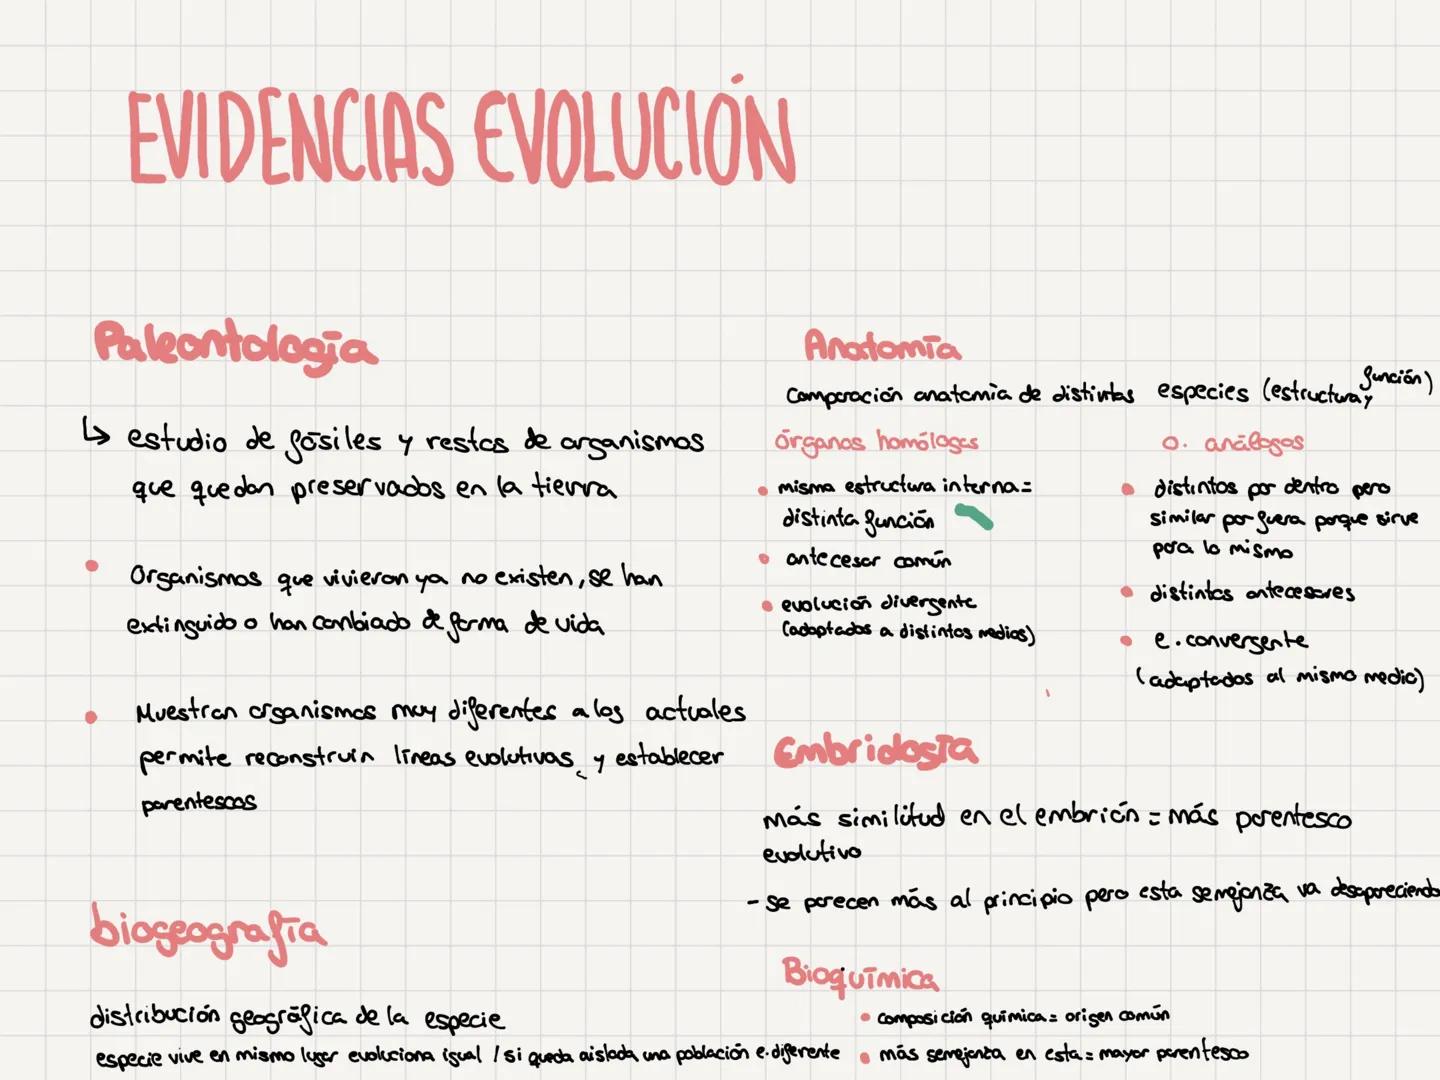 EVIDENCIAS EVOLUCIÓN
Paleontología
↳ estudio de fósiles y restos de organismos
que quedan preservados en la tierra
• Organismos que vivieron ya no existen, se han
extinguido o han cambiado de forma de vida
• Muestran organismos muy diferentes a los actuales
permite reconstruir líneas evolutivas y establecer
parentescos
biogeografía
distribución geográfica de la especie
especie vive en mismo lugar evoluciona igual / si queda aislada una población e. diferente
Anatomía
Comparación anatomía de distintas especies (estructura y función)
órganos homólogos
• misma estructura interna =
distinta función
• antecesor común
• evolución divergente
(adaptados a distintos medios)
o. análogos
• distintos por dentro pero
similar por fuera porque sirve
para lo mismo
• distintos antecesores
• e. convergente
(adaptados al mismo medio)
Embriología
más similitud en el embrión = más parentesco
evolutivo
- se parecen más al principio pero esta semejanza va desapareciendo
Bioquímica
• composición química = origen común
• más semejanza en esta = mayor parentesco